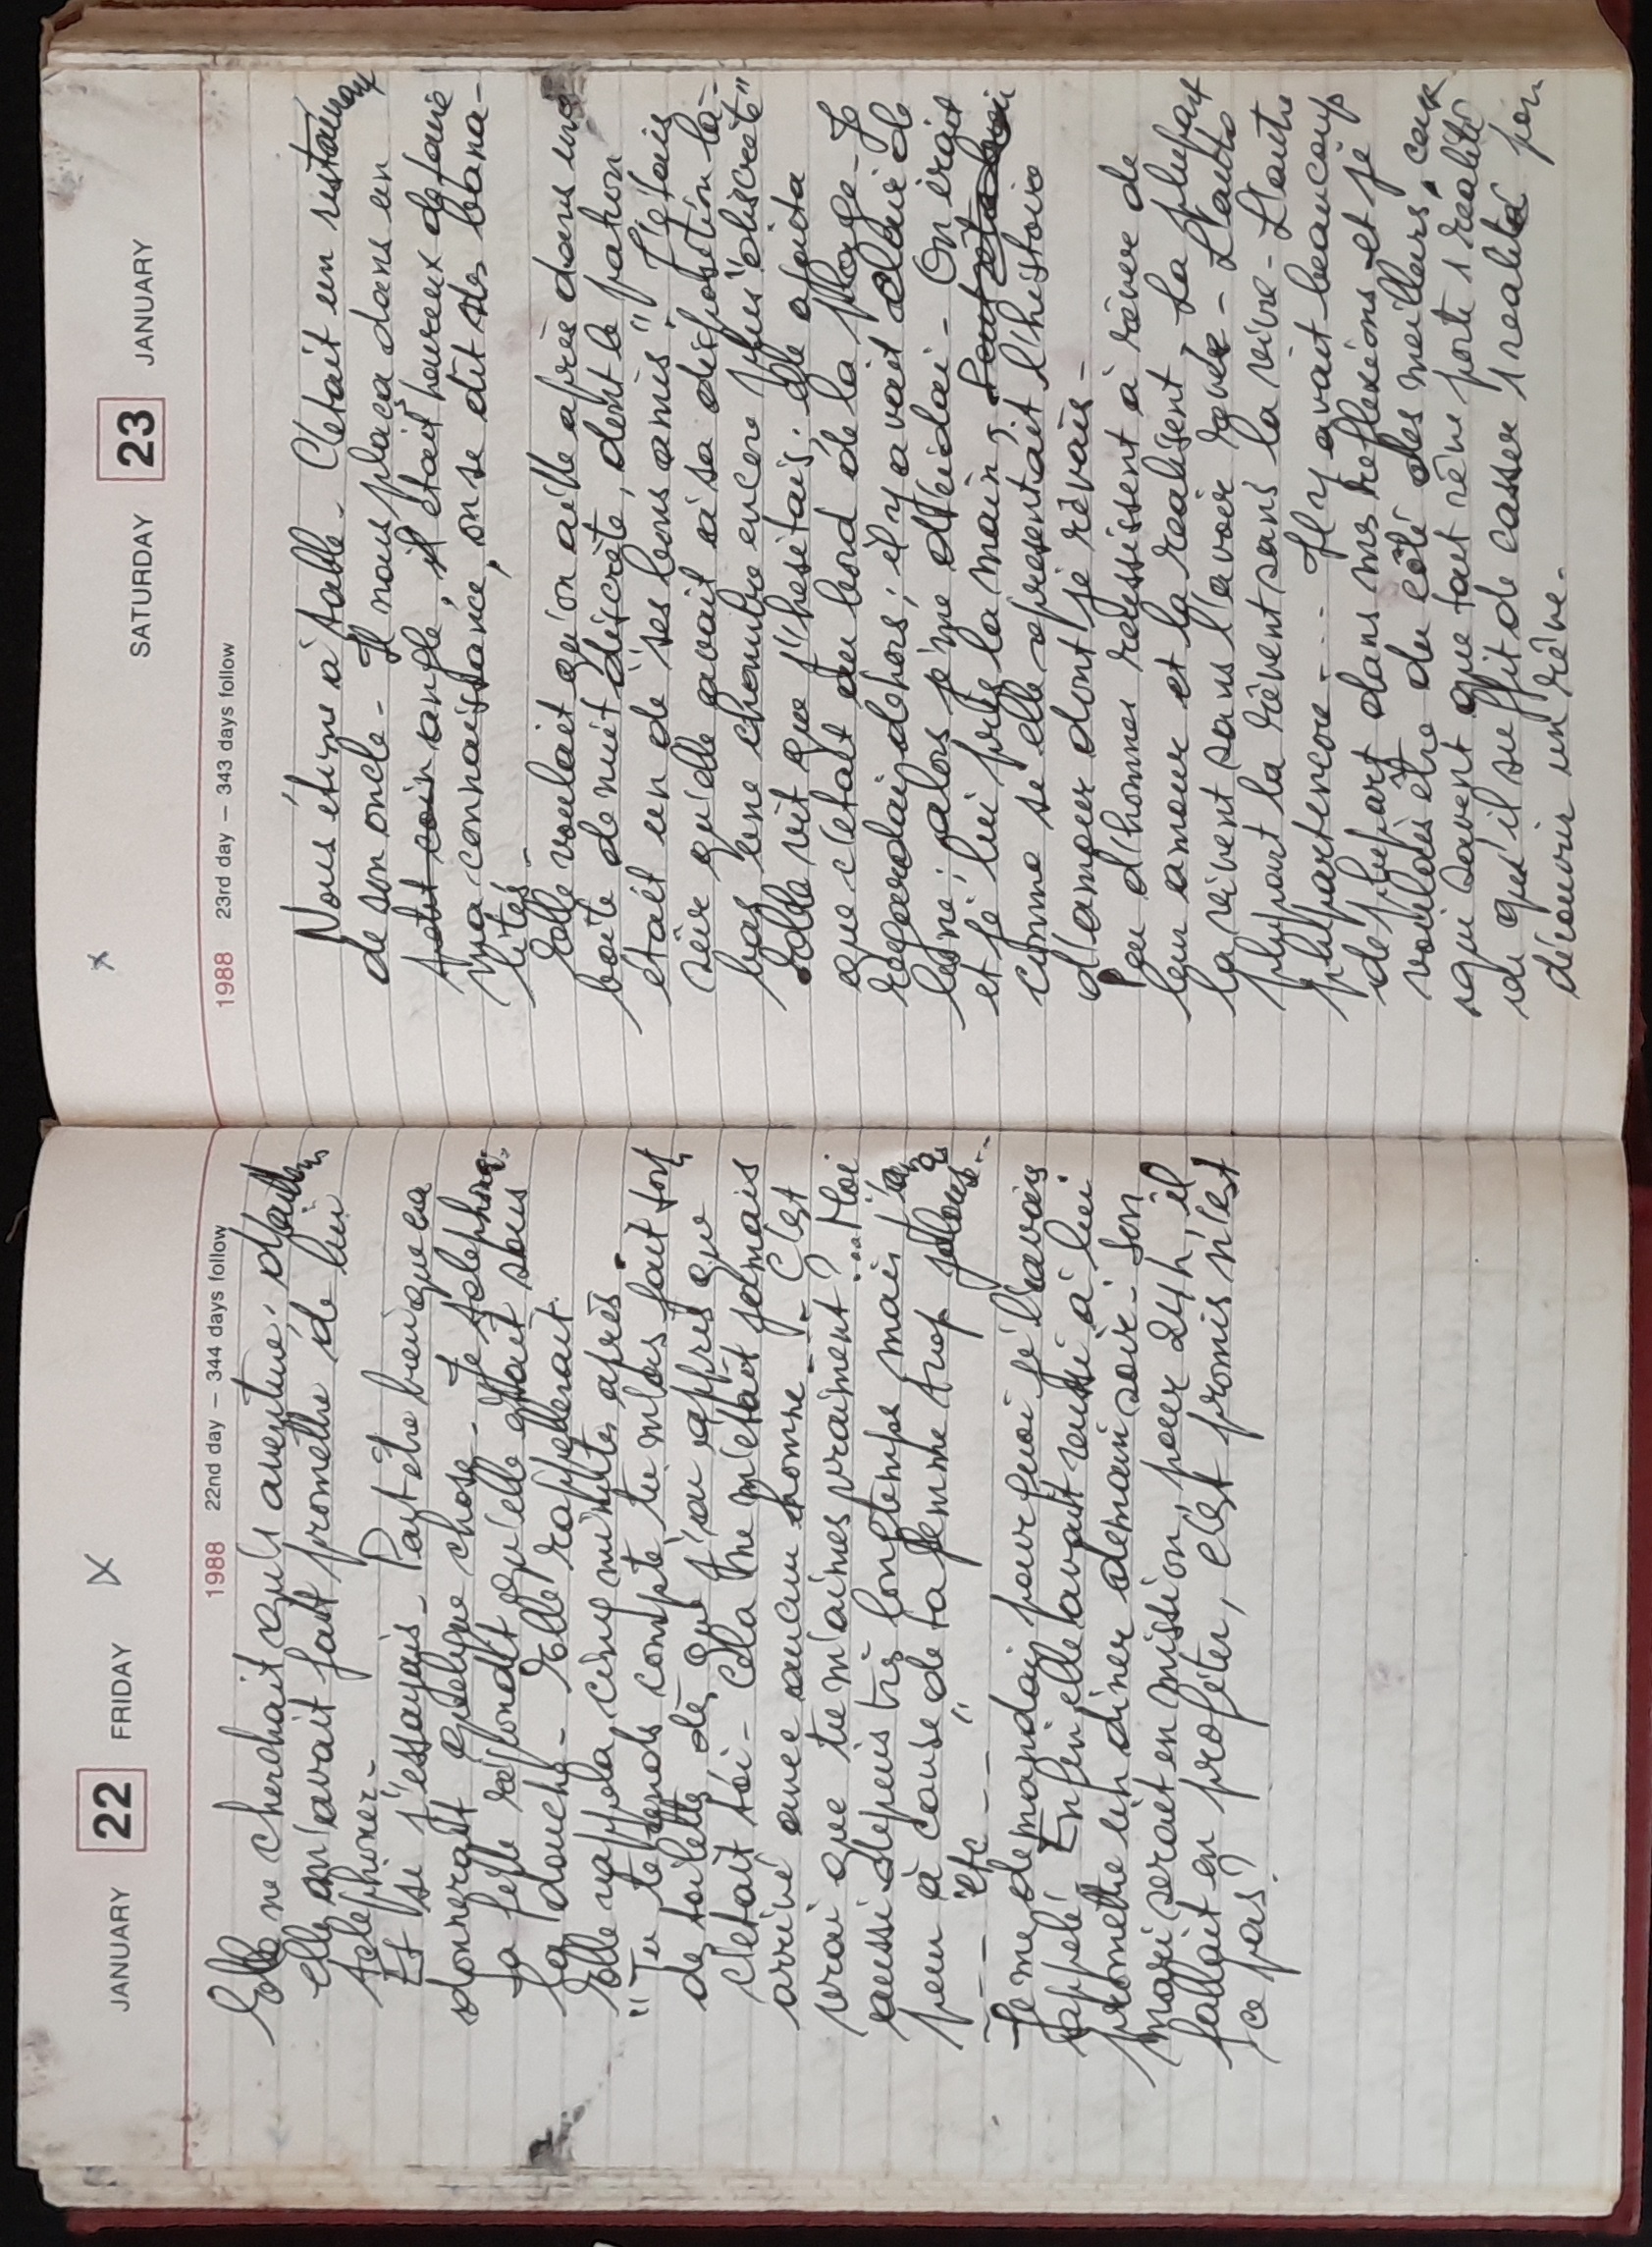 JANUARY 22 FRIDAY X
1988 22nd day – 344 days follow
Elle ne cherchait qu'1 aventure; d'ailleurs
elle m'avait fait promettre de lui
téléphoner -
Et si j'essayais - Peut être bien que ça
donnerait quelque chose - Je téléphonai.
La fille répondit qu'elle était sous
la douche - Elle rappellerait.
Elle rappela cinq minutes après.
"Tu te rends compte tu m'as fait sortir
de toilette dès que j'ai appris que
c'était toi - Cela ne m'était jamais
arrivé avec aucun homme - - - C'est
vrai que tu m'aimes vraiment? ... Moi
aussi depuis très longtemps mais j'ai
peur à cause de ta femme trop jalouse...
- - - etc - - - "
Je me demandais pourquoi je l'avais
rappelé. Enfin elle avait voulu à lui
promettre un diner demain soir - Son
mari serait en mission, pour 24h, il
fallait en profiter, c'est promis n'est
ce pas?
x SATURDAY 23 JANUARY
1988 23rd day – 343 days follow
Nous étions à table - C'était un restaurant
de son oncle - Il nous plaça dans un
petit coin angle, il était heureux de faire
ma connaissance, on se dit des bana-
lités -
Elle voulait qu'on aille après dans une
boite de nuit discrète, dont le patron
était un de "ses bons amis". J'étais
sûr qu'elle avait à sa disposition là-
bas une chambre encore plus "discrète"
Elle vit que j'hésitais; elle ajouta
que c'était au bord de la plage - Je
regardai dehors; il y avait clair de
lune; alors je me décidai - On irait
et je lui pris la main;
comme se elle représentait l'histoire
d'amour dont je rêvais -
Peu d'hommes réussissent à rêver de
leur amour et la réalisent La plupart
la vivent sans l'avoir rêvée - L'autre
plupart la rêvent sans la vivre - L'autre
plupart encore - - - Il y avait beaucoup
de plupart dans mes réflexions et je
voulais être du côté des meilleurs, ceux
qui savent que tout rêve porte 1 réalité
de qu'il suffit de casser 1 réalité pour
découvrir un rêve.